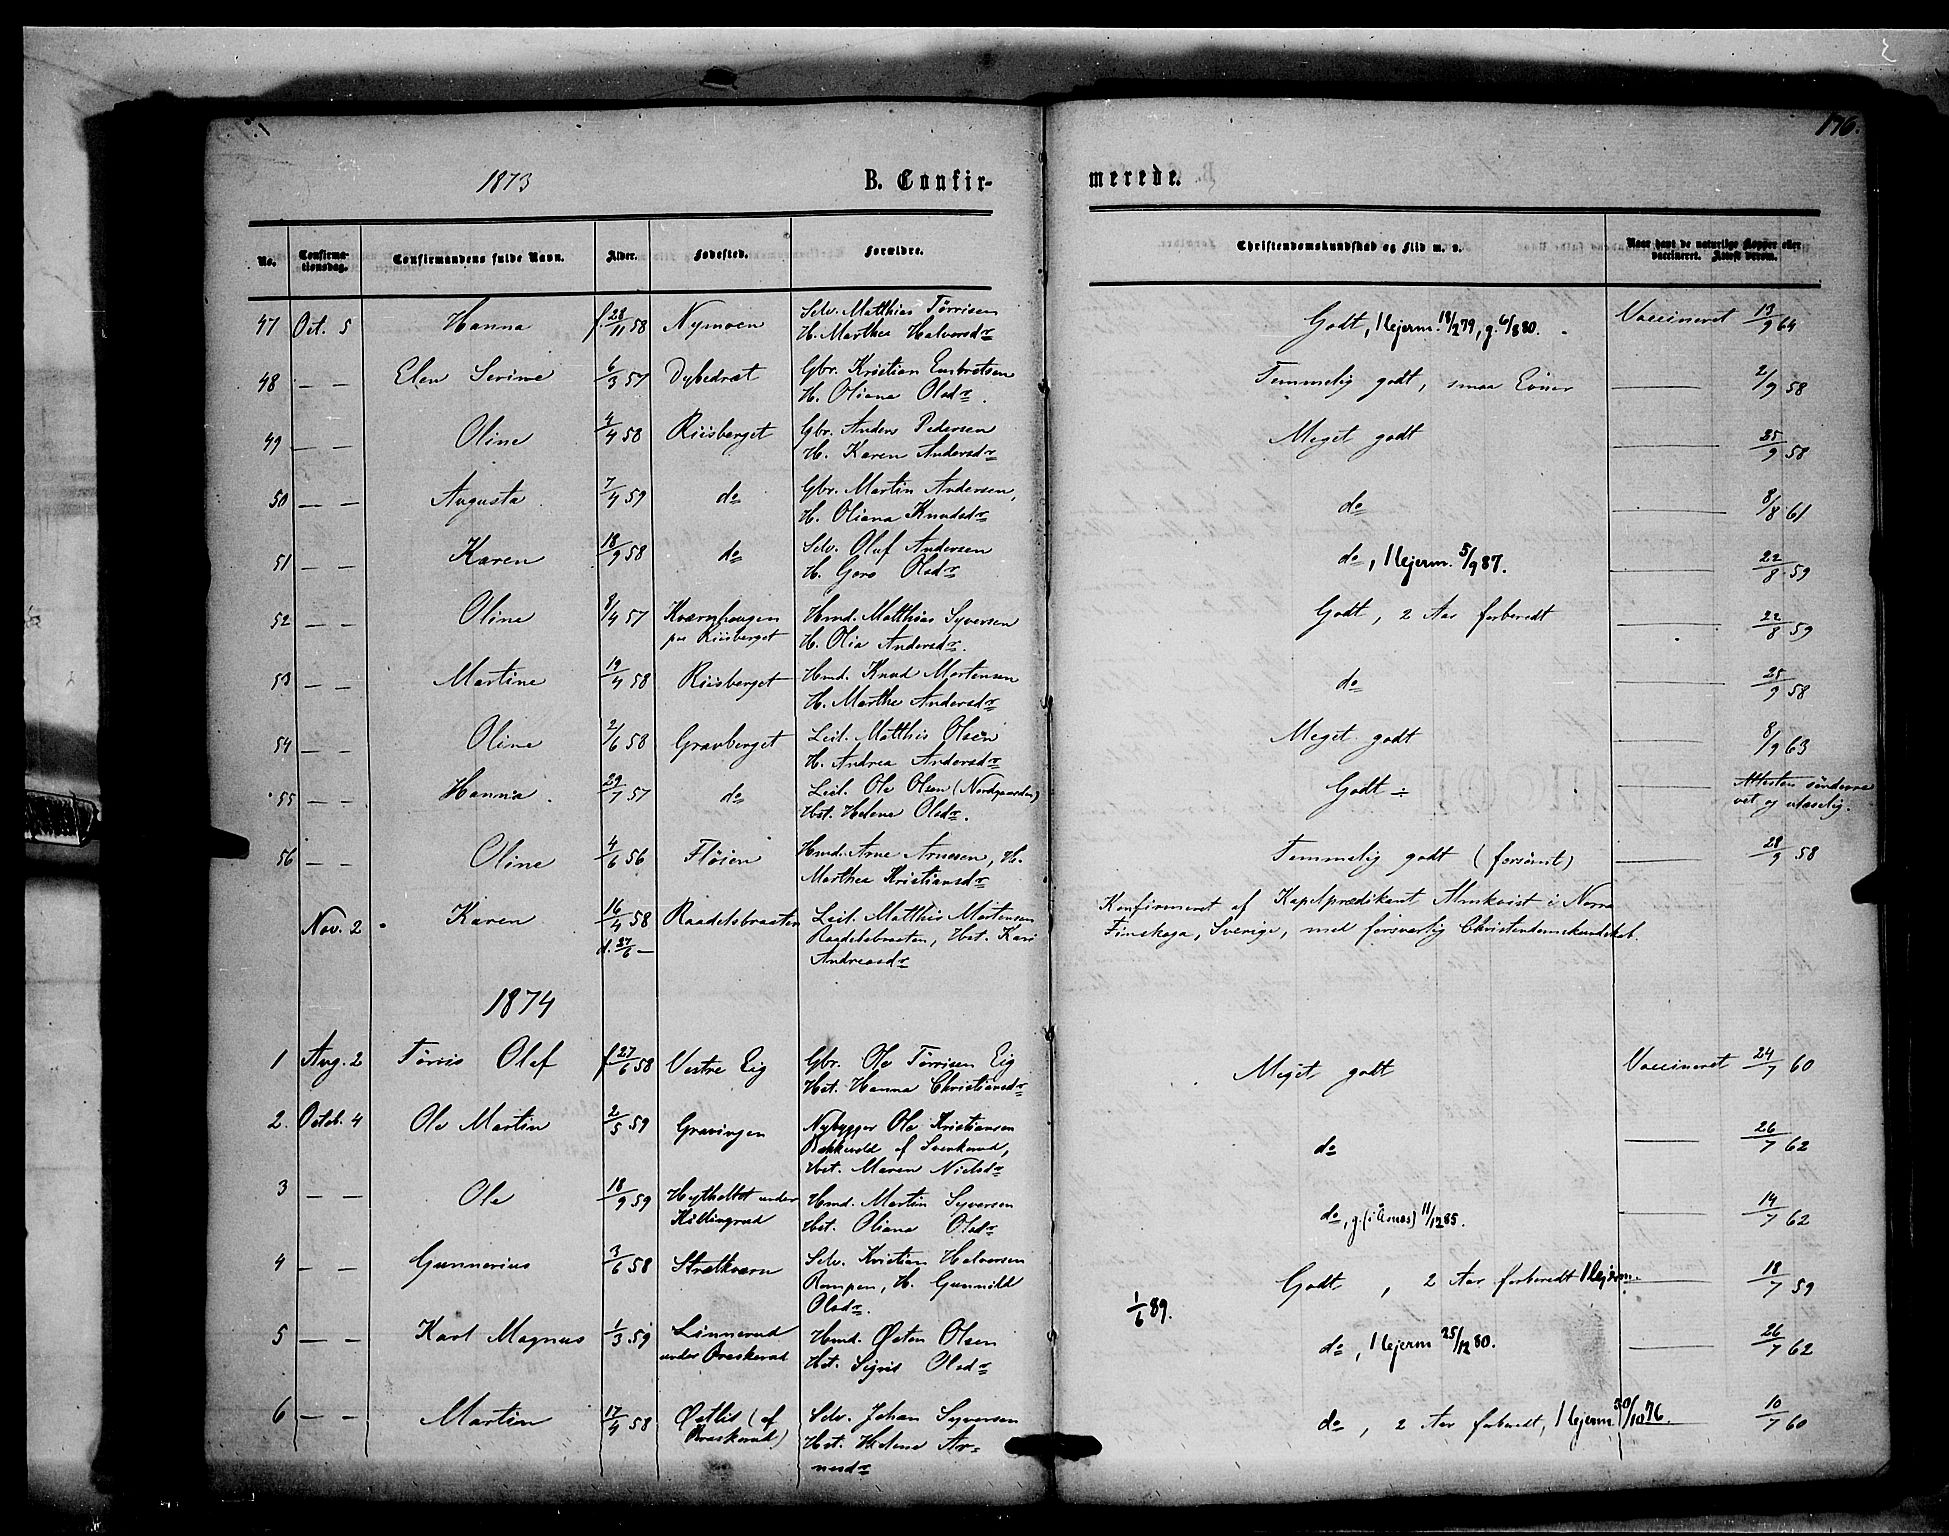 176.
1873 B. Confir- merede.
No. Confirma-tionsdag. Confirmandens fulde Navn. Alder. Fødested. Forældre. Christendomskundskab og Flid m. v. Naar havt de naturlige Kopper eller vaccineret. Attest derom.
47 Oct. 5 Hanna f. 28/11 58 Nymoen Selv. Matthias Tørrisen Godt, Ilejerm. 18/2 79, g. 6/8 80. Vaccineret 13/9 64
H. Marthea Halvorsdr
48 — — Elen Serine 6/3 57 Dybedræt Gbr. Kristian Embretsen Temmelig godt, smaa Evner — 2/9 58
H. Oliana Olsdr.
49 — — Oline 4/4 58 Riisberget Gbr. Anders Pedersen Meget godt — 25/9 58
H. Karen Andersdr
50 — — Augusta 7/4 59 do Gbr. Martin Andersen, do — 8/8 61
H. Oliana Knudsdr
51 — — Karen 18/9 58 do Selv. Oluf Andersen do, Ilejerm. 5/9 87. — 22/8 59
H. Goro Olsdr
52 — — Oline 8/4 57 Kværnhaugen Hmd. Matthias Syversen Godt, 2 Aar forberedt — 22/8 59
paa Riisberget H. Olia Andersdr.
53 — — Martine 19/4 58 Riisberget Hmd. Knud Mortensen do — 25/9 58
H. Marthe Andersdr
54 — — Oline 2/6 58 Gravberget Leil. Matthis Olsen Meget godt — 8/9 63
H. Andrea Andersdr
55 — — Hanna 29/7 57 do Leil. Ole Olsen (Nordgaarden) Godt ÷ — Attesten sønderre
Hst. Helene Olsdr. vet og ulæselig.
56 — — Oline 4/6 56 Fløien Hmd. Arne Arnesen, H. Temmelig godt (forsømt) — 28/9 58
Marthea Kristiansdr
Nov. 2 Karen 16/4 58 Raadelsbraaten Leil. Matthis Mortensen Konfirmeret af Kapelprædikant Almkvist i Norra
d. 27/6 — Raadelsbraaten, Hst. Kari Finskoga, Sverige, med forsvarlig Christendomskundskab.
Andreasdr
1874
1 Aug. 2 Tørris Olaf f. 27/6 58 Vestre Eig Gbr. Ole Tørrisen Eig Meget godt Vaccineret 24/7 60
Hst. Hanna Christiansdr
2. Octob. 4 Ole Martin 2/5 59 Gravingen Nybygger Ole Kristiansen do — 26/7 62
af Svenkerud,
Hst. Maren Nielsdr
3 — — Ole 18/9 59 Hytheltet under Hmd. Martin Syversen do, g. (i Elmes) 11/12 85. — 14/7 62
Killingrud Hst. Oliana Olsdr
4 — — Gunnerius 3/6 58 Strætkværn Selv. Kristian Halvorsen Godt, 2 Aar forberedt Ilejerm. — 18/7 59
Rompen, H. Gunnild 1/6 89.
Olsdr.
5 — — Karl Magnus 1/3 59 Linnerud Hmd. Østen Olsen do, Ilejerm 25/12 80. — 26/7 62
under Braskerud Hst. Sigris Olsdr
6 — — Martin 17/4 58 Østlie (af Selv. Johan Syversen do, 2 Aar forberedt, Ilejerm. 30/10 76. — 10/7 60
Braskerud) Hst. Helene Ar-
nesdr